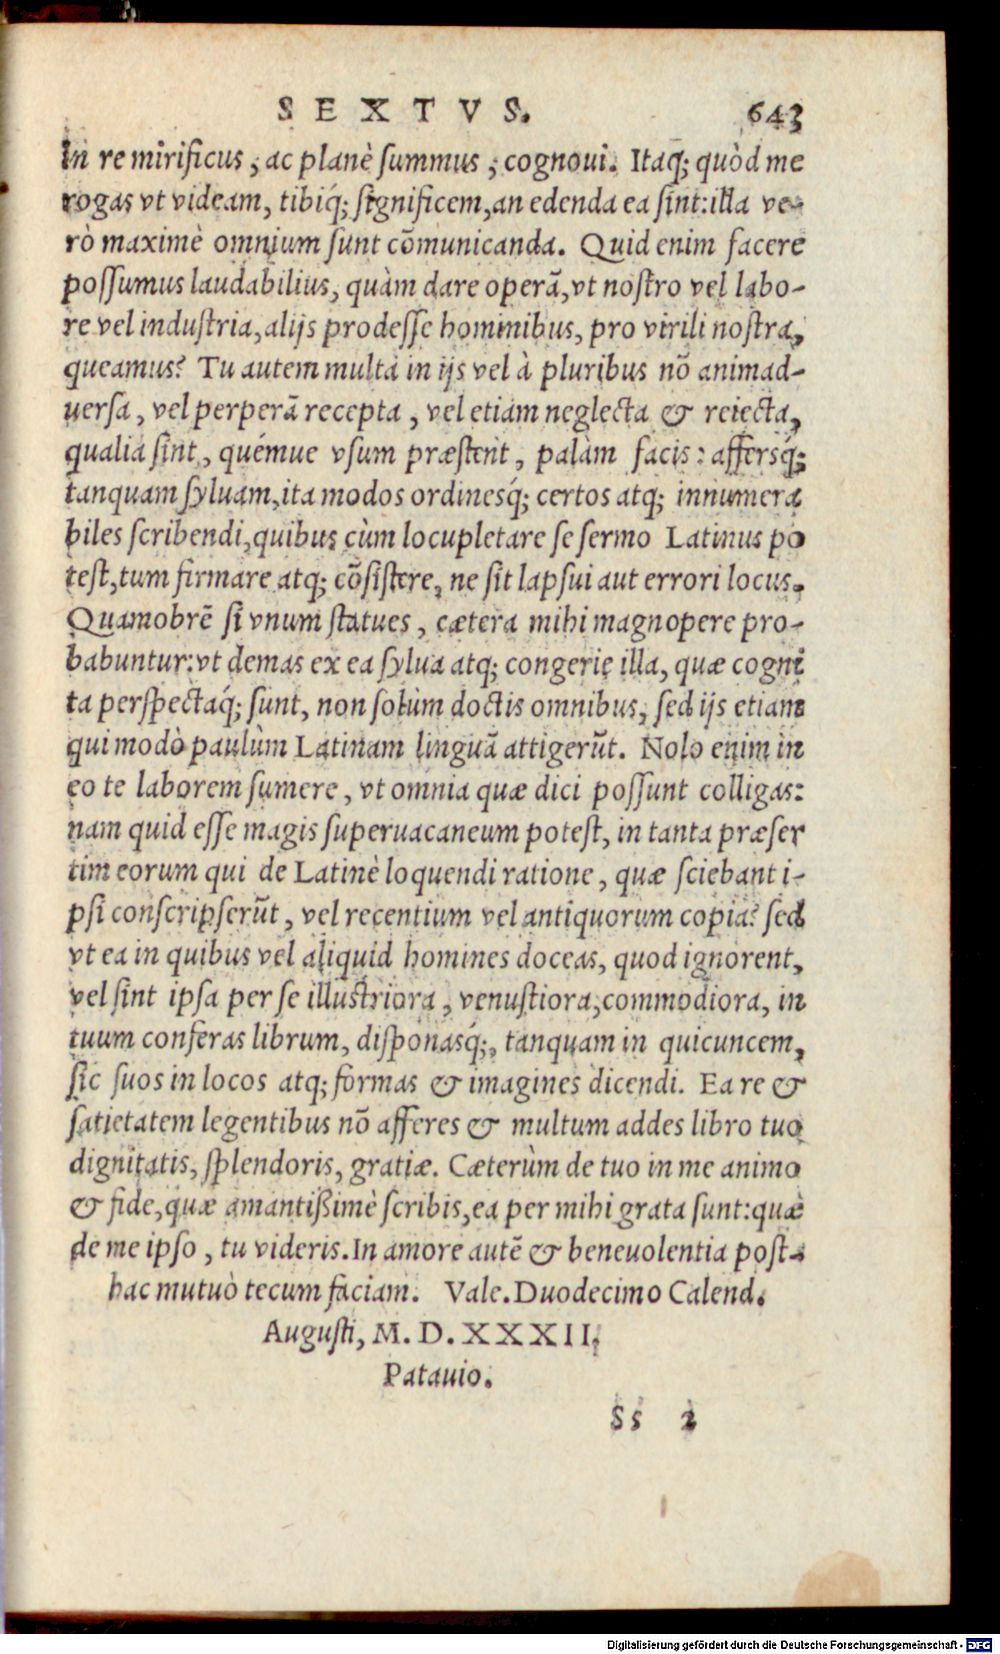 SEXTVS. 643
in re mirificus, ac planè summus, cognoui. Itaq́; quòd me
rogas vt videam, tibiq́; significem, an edenda ea sint: illa ve-
rò maximè omnium sunt cōmunicanda. Quid enim facere
possumus laudabilius, quàm dare operā, vt nostro vel labo-
re vel industria, alijs prodesse hominibus, pro virili nostra,
queamus? Tu autem multa in ijs vel à pluribus nō animad-
uersa, vel perperā recepta, vel etiam neglecta & reiecta,
qualia sint, quémue vsum præstent, palàm facis: affersq́;
tanquam syluam, ita modos ordinesq́; certos atq; innumera
biles scribendi, quibus cùm locupletare se sermo Latinus po
test, tum firmare atq; cōsistere, ne sit lapsui aut errori locus.
Quamobrē si vnum statues, cætera mihi magnopere pro-
babuntur: vt demas ex ea sylua atq; congerie illa, quæ cogni
ta perspectaq́; sunt, non solùm doctis omnibus, sed ijs etiam
qui modò paulùm Latinam linguā attigerūt. Nolo enim in
eo te laborem sumere, vt omnia quæ dici possunt colligas:
nam quid esse magis superuacaneum potest, in tanta præser
tim eorum qui de Latinè loquendi ratione, quæ sciebant i-
psi conscripserūt, vel recentium vel antiquorum copia? sed
vt ea in quibus vel aliquid homines doceas, quod ignorent,
vel sint ipsa per se illustriora, venustiora, commodiora, in
tuum conferas librum, disponasq́;, tanquam in quicuncem,
sic suos in locos atq; formas & imagines dicendi. Ea re &
satietatem legentibus nō afferes & multum addes libro tuo
dignitatis, splendoris, gratiæ. Cæterùm de tuo in me animo
& fide, quæ amantißimè scribis, ea per mihi grata sunt: quæ
de me ipso, tu videris. In amore autē & beneuolentia post-
hac mutuò tecum faciam. Vale. Duodecimo Calend.
Augusti, M. D. XXXII.
Patauio.
Ss 2
Digitalisierung gefördert durch die Deutsche Forschungsgemeinschaft - DFG